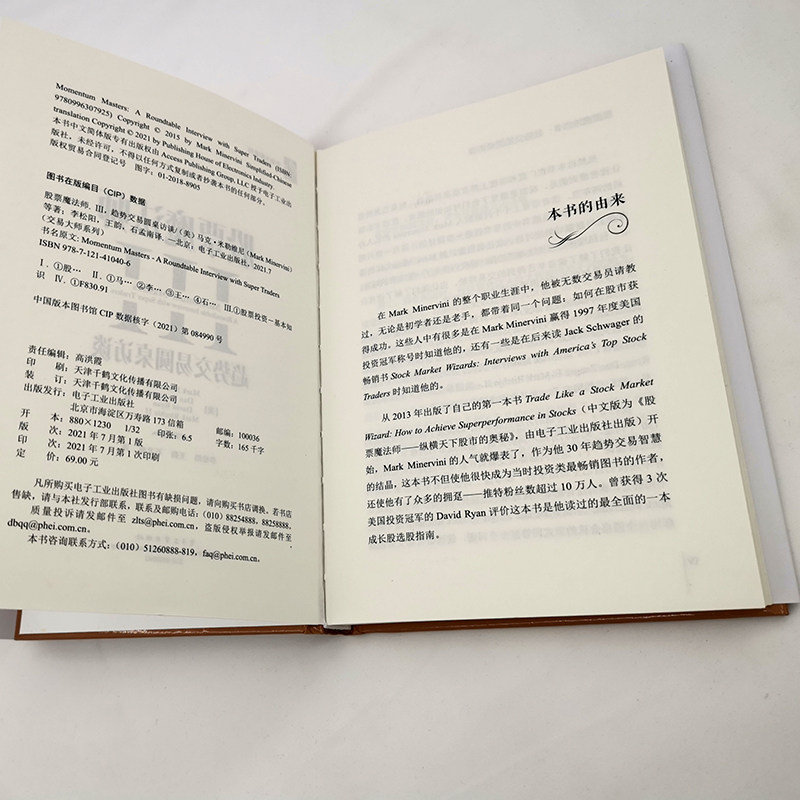 Momentum Masters: A Roundtable Interview with Super Traders (ISBN
9780996307925) Copyright © 2015 by Mark Minervini Simplified-Chinese
translation Copyright © 2021 by Publishing House of Electronics Industry.
本书中文简体版专有出版权由 Access Publishing Group, LLC 授予电子工业出
版社，未经许可，不得以任何方式复制或者抄袭本书的任何部分。
版权贸易合同登记号 图字：01-2018-8905
图书在版编目（CIP）数据
股票魔法师. Ⅲ，趋势交易圆桌访谈/（美）马克·米勒维尼（Mark Minervini）
等著；李松阳，王韵，石孟南译. —北京：电子工业出版社，2021.7
（交易大师系列）
书名原文: Momentum Masters - A Roundtable Interview with Super Traders
ISBN 978-7-121-41040-6
Ⅰ. ①股… Ⅱ. ①马… ②李… ③王… ④石… Ⅲ.①股票投资－基本知
识 Ⅳ. ①F830.91
中国版本图书馆 CIP 数据核字（2021）第 084990 号
责任编辑：高洪霞
印 刷：天津千鹤文化传播有限公司
装 订：天津千鹤文化传播有限公司
出版发行：电子工业出版社
北京市海淀区万寿路 173 信箱 邮编：100036
开 本：880×1230 1/32 印张：6.5 字数：165 千字
版 次：2021 年 7 月第 1 版
印 次：2021 年 7 月第 1 次印刷
定 价：69.00 元
凡所购买电子工业出版社图书有缺损问题，请向购买书店调换。若书店
售缺，请与本社发行部联系，联系及邮购电话：（010）88254888，88258888。
质量投诉请发邮件至 zlts@phei.com.cn，盗版侵权举报请发邮件至
dbqq@phei.com.cn。
本书咨询联系方式：（010）51260888-819，faq@phei.com.cn。
本书的由来
在 Mark Minervini 的整个职业生涯中，他被无数交易员请教
过，无论是初学者还是老手，都带着同一个问题：如何在股市获
得成功。这些人中有很多是在 Mark Minervini 赢得 1997 年度美国
投资冠军称号时知道他的，还有一些是在后来读 Jack Schwager 的
畅销书 Stock Market Wizards: Interviews with America's Top Stock
Traders 时知道他的。
从 2013 年出版了自己的第一本书 Trade Like a Stock Market
Wizard: How to Achieve Superperformance in Stocks（中文版为《股
票魔法师——纵横天下股市的奥秘》，由电子工业出版社出版）开
始，Mark Minervini 的人气就爆表了，作为他 30 年趋势交易智慧
的结晶，这本书不但使他很快成为当时投资类最畅销图书的作者，
还使他有了众多的拥趸——推特粉丝数超过 10 万人。曾获得 3 次
美国投资冠军的 David Ryan 评价这本书是他读过的最全面的一本
成长股选股指南。